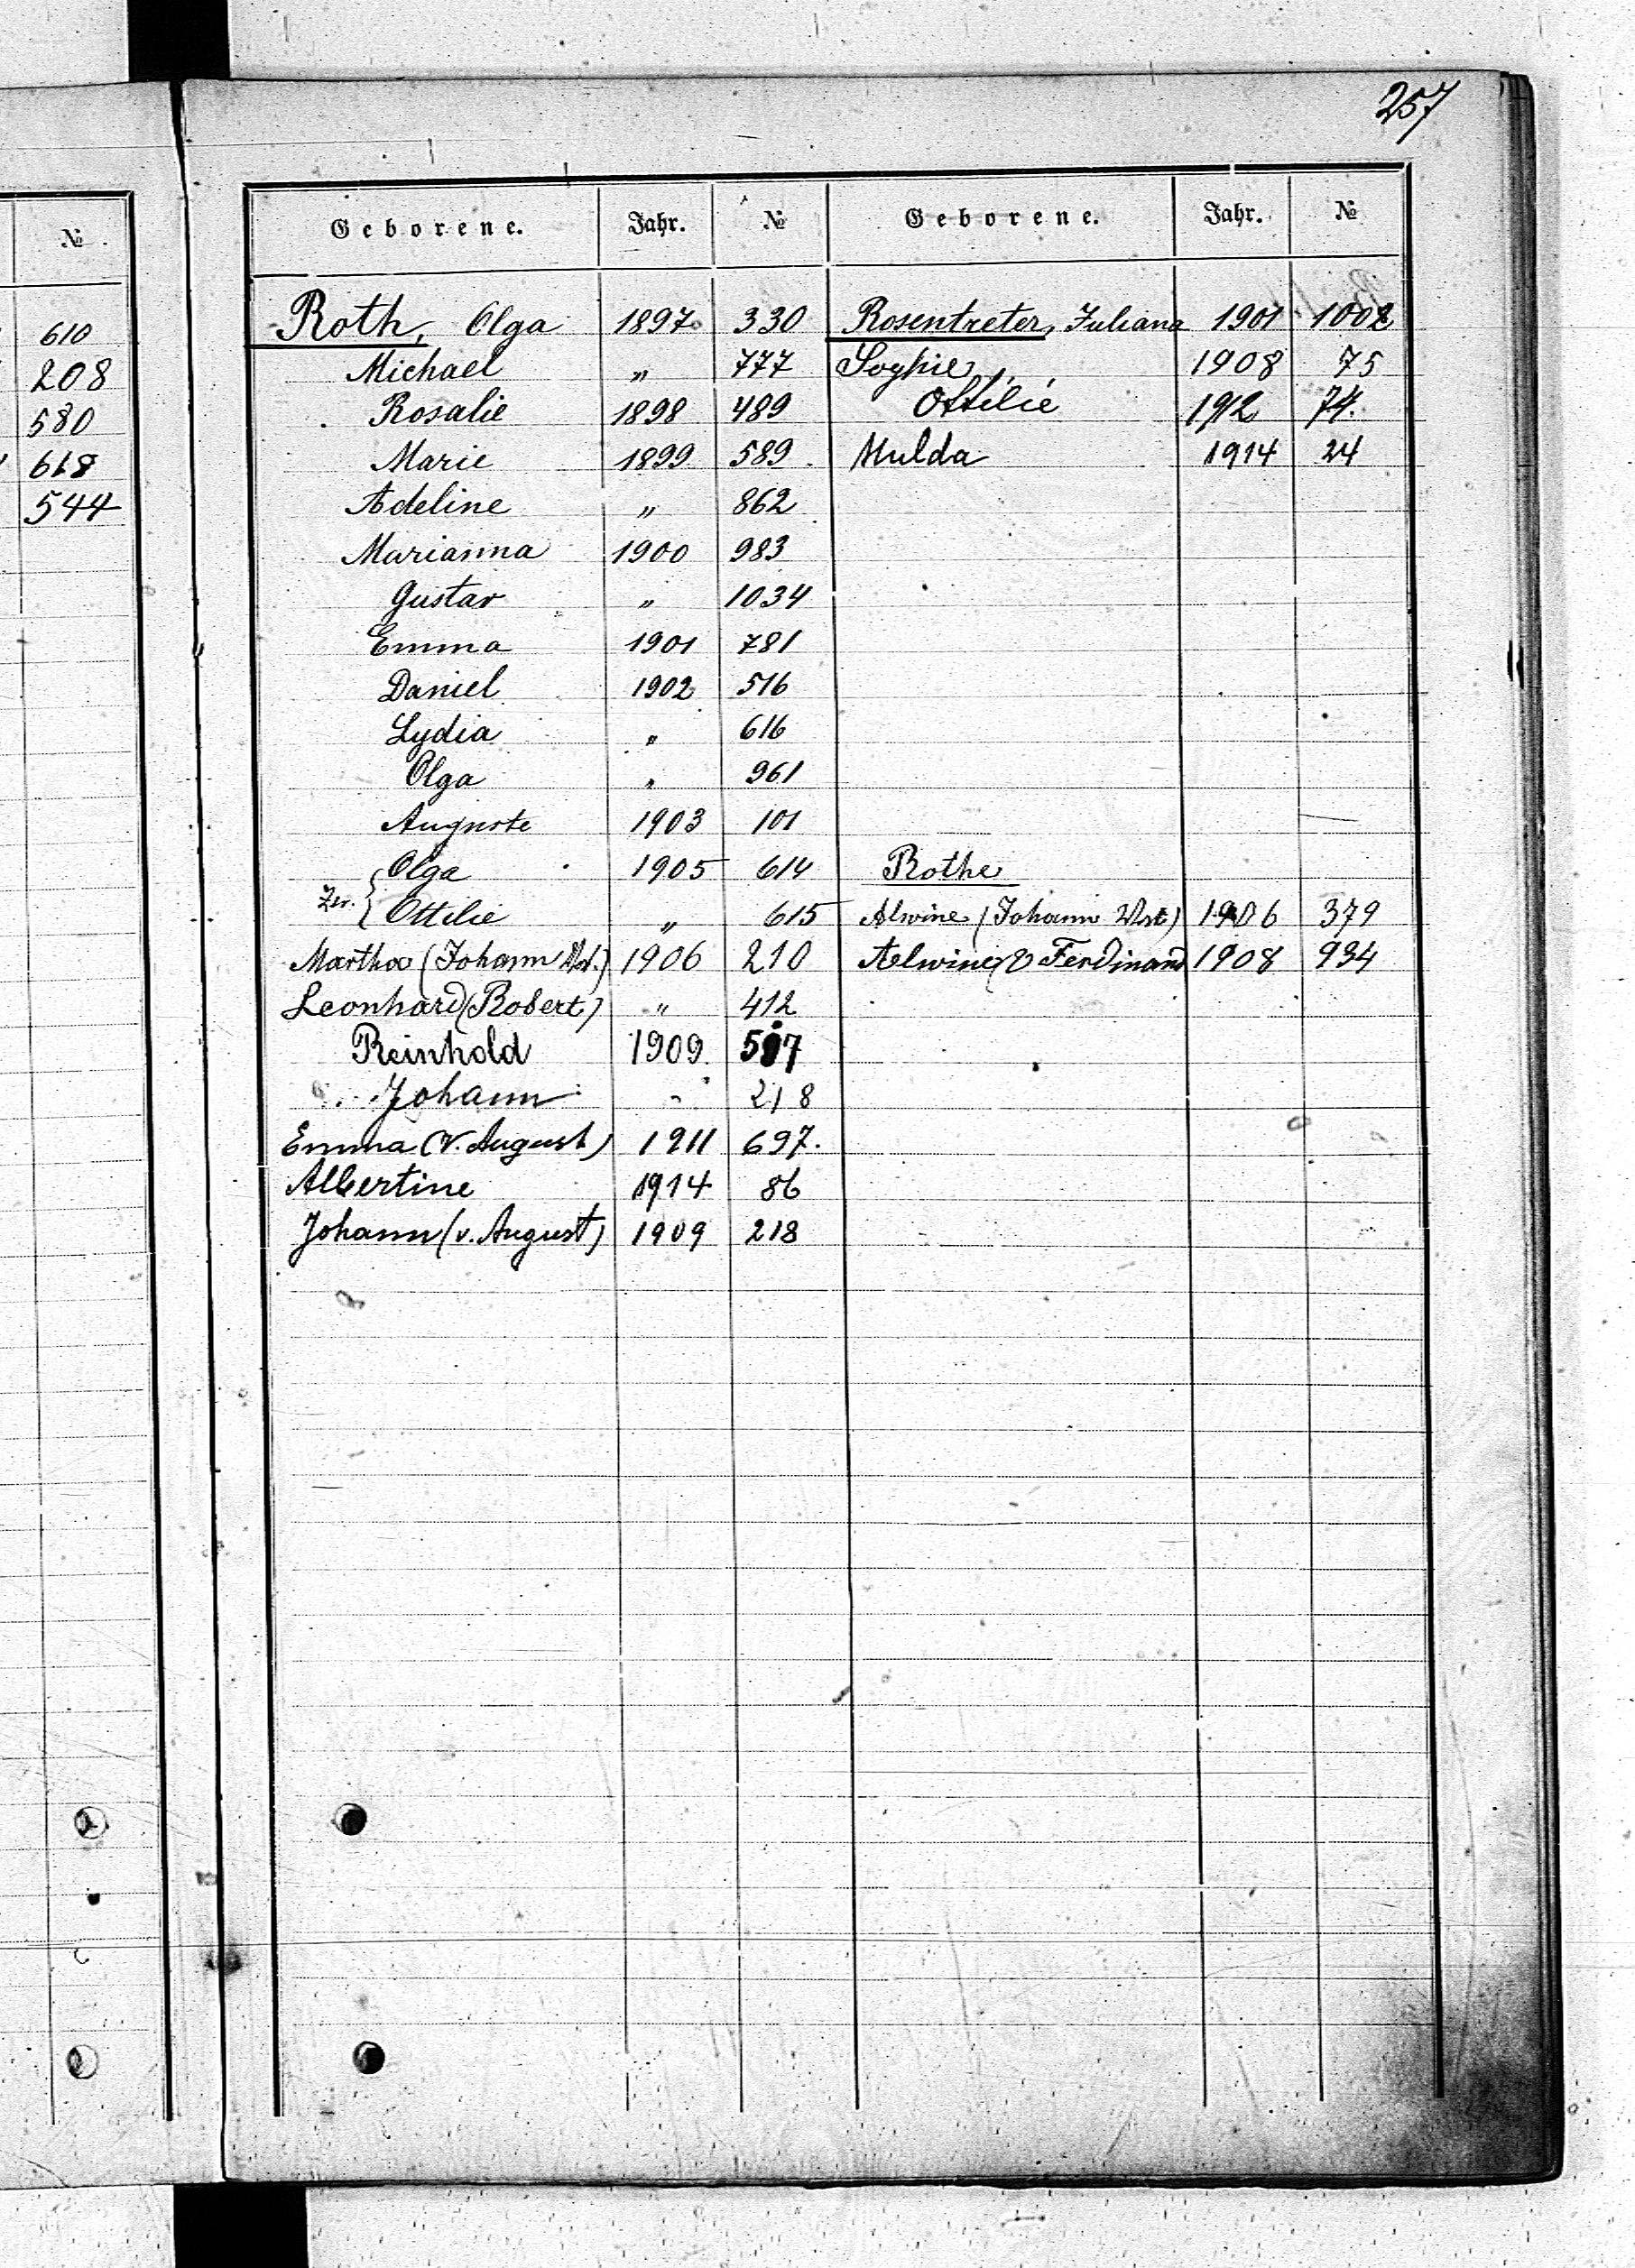 257
№
610
208
580
618
544
Geborene. Jahr. №
Roth, Olga 1897 330
Michael " 777
Rosalie 1898 489
Marie 1899 589
Adeline " 862
Marianna 1900 983
Gustav " 1034
Emma 1901 781
Daniel 1902 516
Lydia " 616
Olga " 961
Auguste 1903 101
Olga 1905 614
Zw. { Ottilie " 615
Martha (Johann) 1906 210
Leonhard (Robert) " 412
Reinhold 1909 507
Johann " 218
Emma (v. August) 1911 697.
Albertine 1914 86
Johann (v. August) 1909 218
Geborene. Jahr. №
Rosentreter, Juliana 1901 1002
Sophie 1908 75
Ottilie 1912 74.
Hulda 1914 24
Rothe
Alwine (Johann) 1906 379
Aelwine v Ferdinand 1908 934